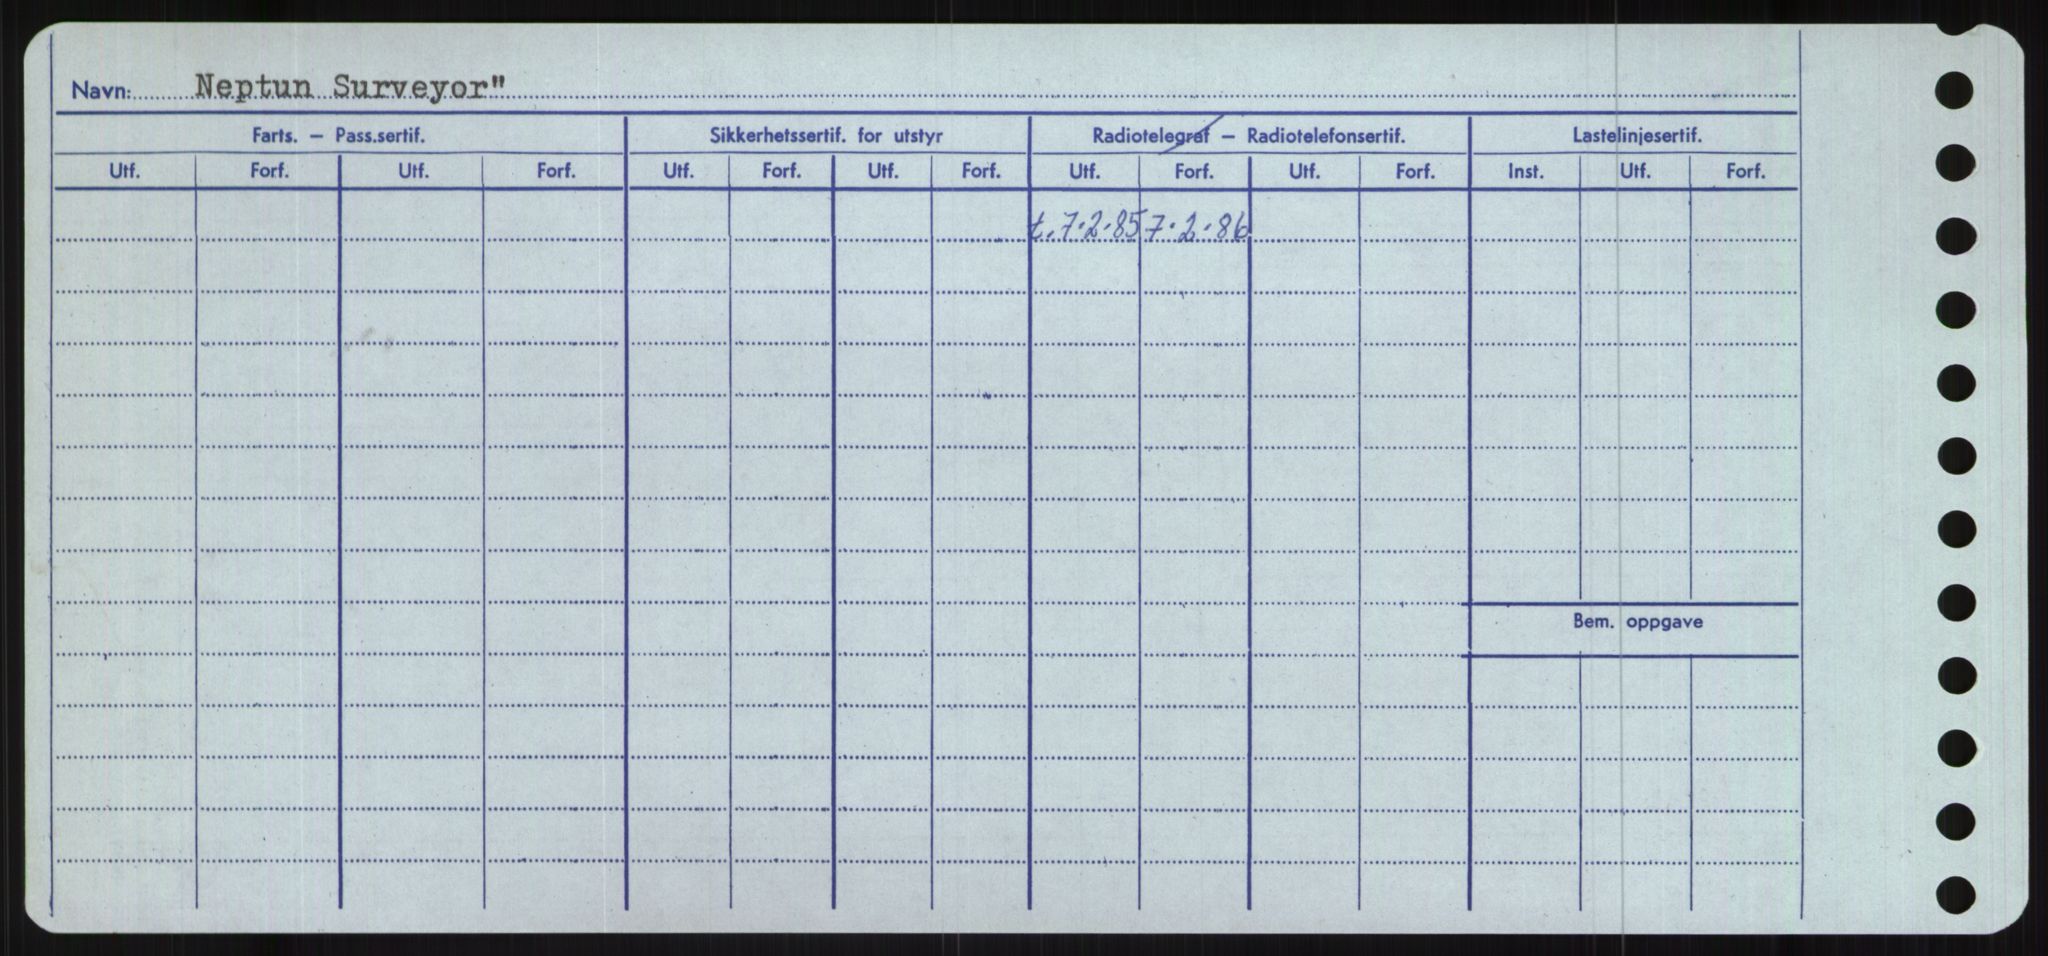 Navn: Neptun Surveyor"
Farts. – Pass.sertif. Sikkerhetssertif. for utstyr Radiotelegraf – Radiotelefonsertif. Lastelinjesertif.
Utf. Forf. Utf. Forf. Utf. Forf. Utf. Forf. Utf. Forf. Utf. Forf. Inst. Utf. Forf.
t. 7.2.85 7.2.86
Bem. oppgave